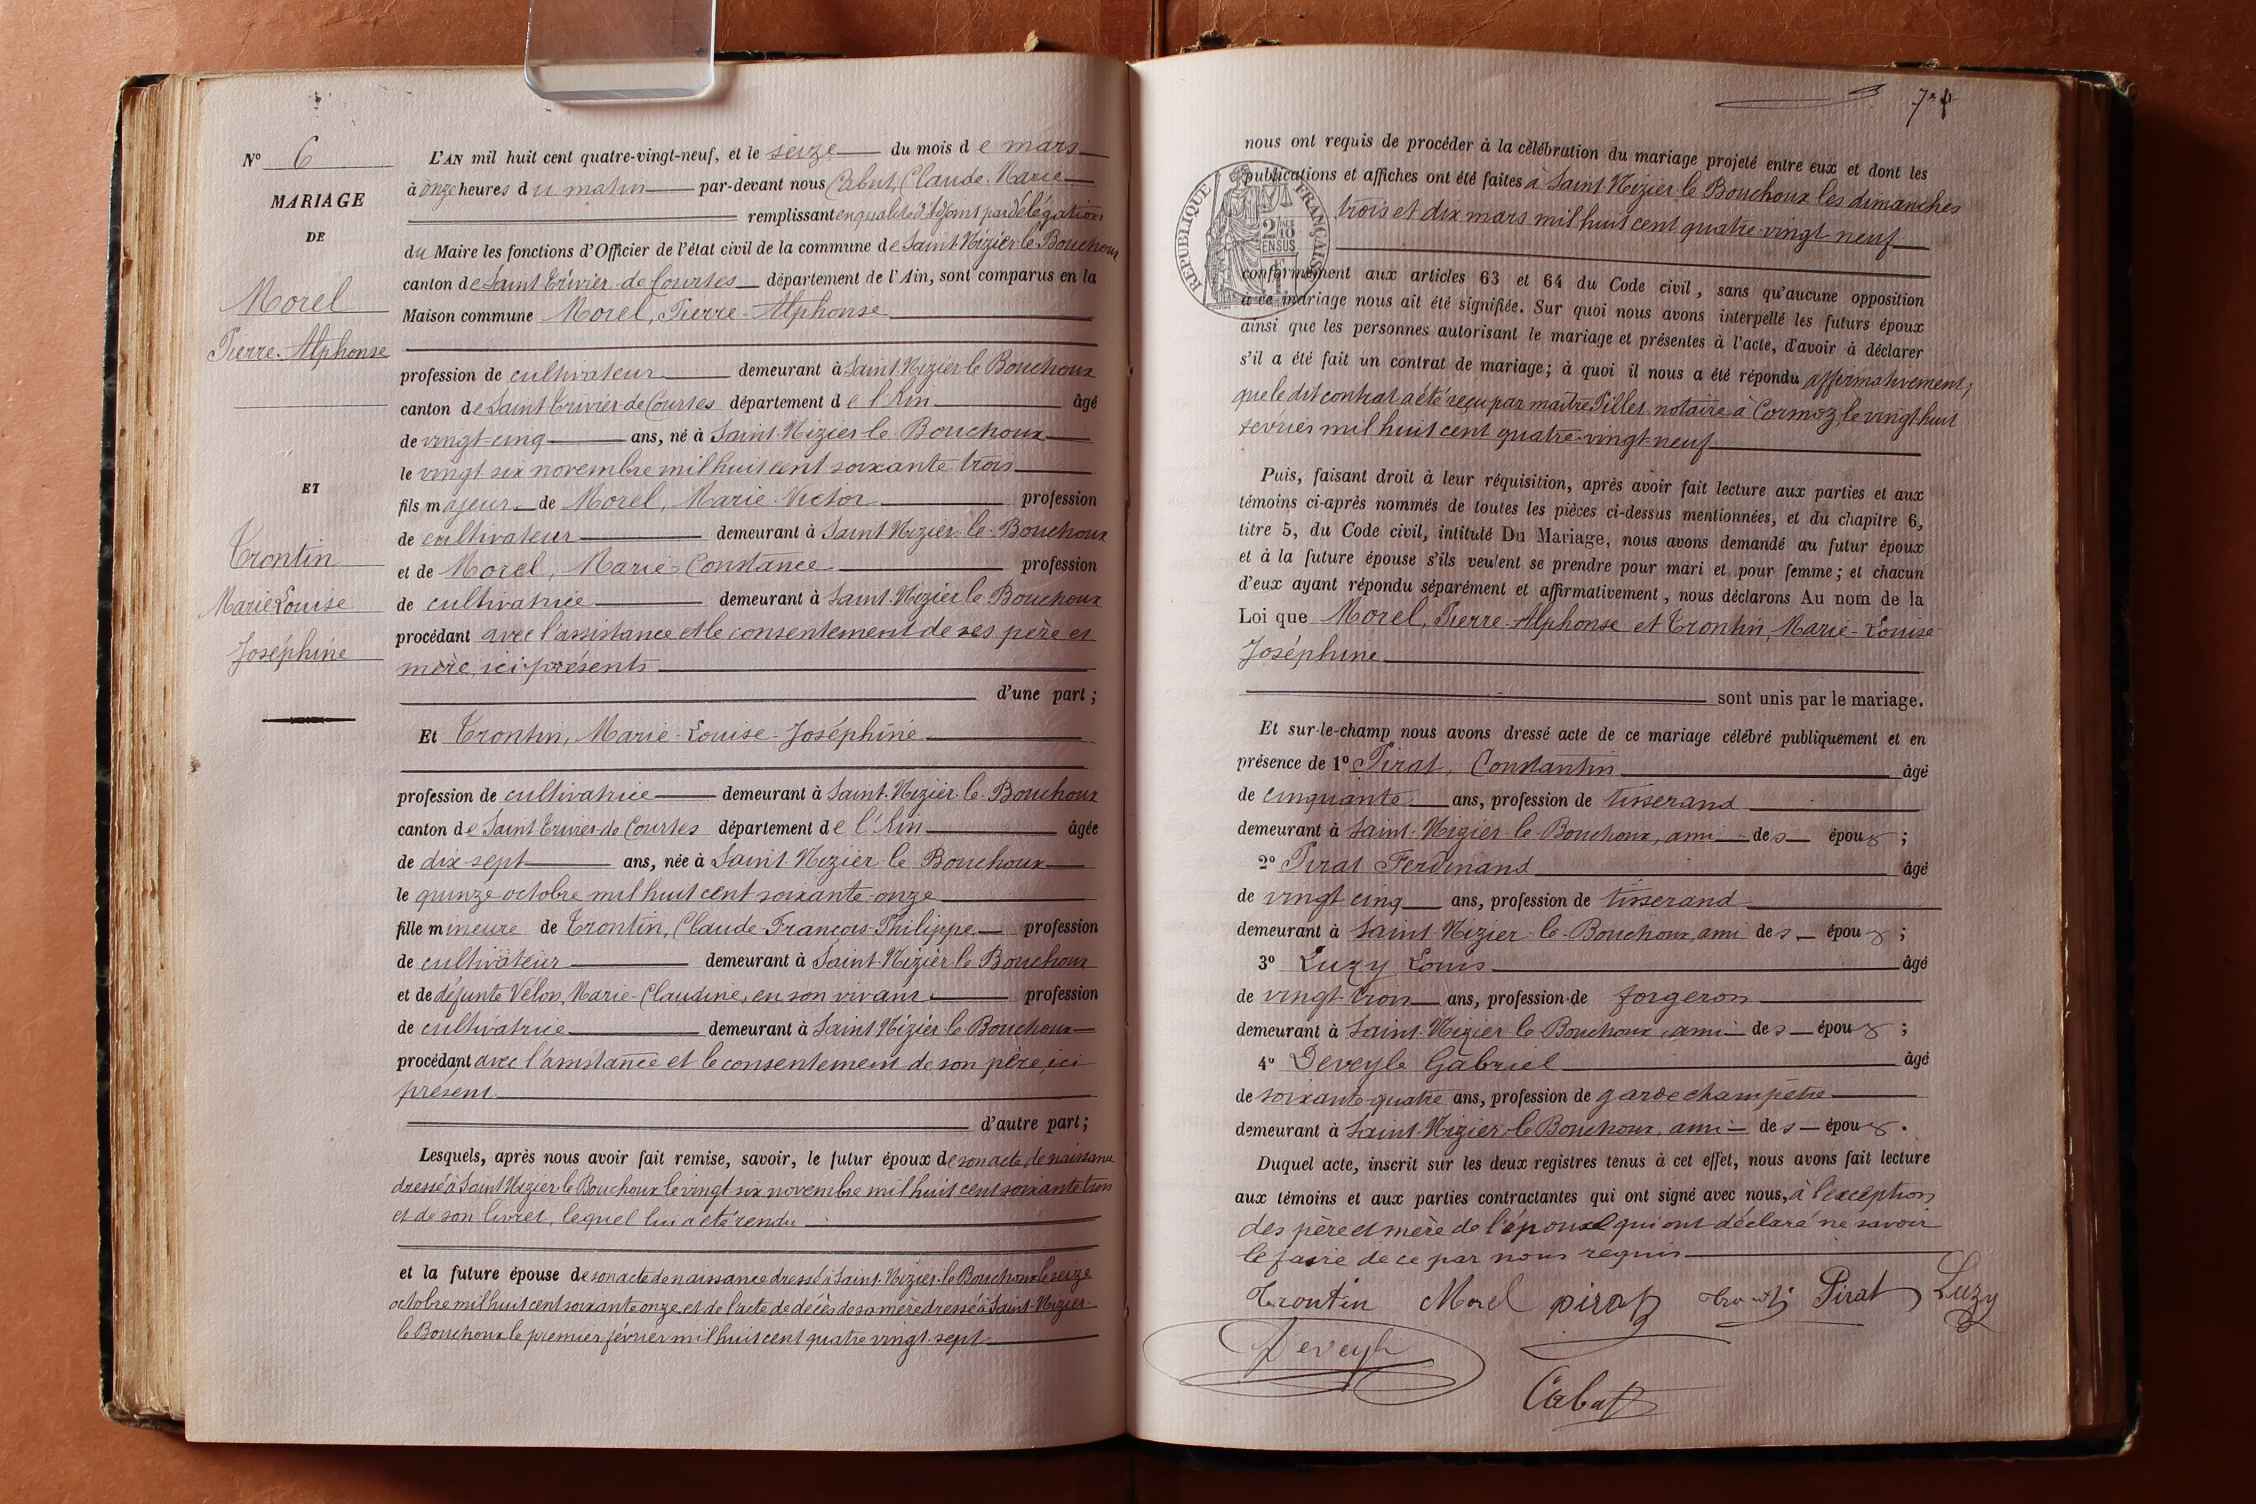 N° 6
MARIAGE
DE
Morel
Pierre-Alphonse
ET
Trontin
Marie Louise
Joséphine
L'AN mil huit cent quatre-vingt-neuf, et le seize du mois de mars
à onze heures du matin par-devant nous Cabut, Claude-Marie
remplissant en qualité d'Adjoint par délégation
du Maire les fonctions d'Officier de l'état civil de la commune de Saint-Nizier-le-Bouchoux
canton de Saint Trivier-de-Courtes département de l'Ain, sont comparus en la
Maison commune Morel, Pierre-Alphonse
profession de cultivateur demeurant à Saint-Nizier-le-Bouchoux
canton de Saint Trivier-de-Courtes département de l'Ain âgé
de vingt-cinq ans, né à Saint-Nizier-le-Bouchoux
le vingt-six novembre mil huit cent soixante trois
fils majeur de Morel, Marie-Victor profession
de cultivateur demeurant à Saint-Nizier-le-Bouchoux
et de Morel, Marie-Constance profession
de cultivatrice demeurant à Saint-Nizier-le-Bouchoux
procédant avec l'assistance et le consentement de ses père et
mère, ici présents
d'une part;
Et Trontin, Marie-Louise-Joséphine
profession de cultivatrice demeurant à Saint-Nizier-le-Bouchoux
canton de Saint Trivier-de-Courtes département de l'Ain âgée
de dix-sept ans, née à Saint-Nizier-le-Bouchoux
le quinze octobre mil huit cent soixante-onze
fille mineure de Trontin, Claude-François-Philippe profession
de cultivateur demeurant à Saint-Nizier-le-Bouchoux
et de défunte Vélon, Marie-Claudine, en son vivant profession
de cultivatrice demeurant à Saint-Nizier-le-Bouchoux
procédant avec l'assistance et le consentement de son père, ici
présent
d'autre part;
Lesquels, après nous avoir fait remise, savoir, le futur époux de son acte de naissance
dressé à Saint-Nizier-le-Bouchoux le vingt-six novembre mil huit cent soixante trois
et de son livret, lequel lui a été rendu
et la future épouse de son acte de naissance dressé à Saint-Nizier-le-Bouchoux le seize
octobre mil huit cent soixante onze et de l'acte de décès de sa mère dressé à Saint-Nizier-
le-Bouchoux le premier février mil huit cent quatre vingt-sept
nous ont requis de procéder à la célébration du mariage projeté entre eux et dont les
publications et affiches ont été faites à Saint-Nizier-le-Bouchoux les dimanches
trois et dix mars mil huit cent quatre-vingt-neuf
RÉPUBLIQUE FRANÇAISE
2/10 EN SUS
conformément aux articles 63 et 64 du Code civil, sans qu'aucune opposition
à ce mariage nous ait été signifiée. Sur quoi nous avons interpellé les futurs époux
ainsi que les personnes autorisant le mariage et présentes à l'acte, d'avoir à déclarer
s'il a été fait un contrat de mariage; à quoi il nous a été répondu affirmativement,
que le dit contrat a été reçu par maître Pillet notaire à Cormoz, le vingt-huit
février mil huit cent quatre-vingt-neuf
Puis, faisant droit à leur réquisition, après avoir fait lecture aux parties et aux
témoins ci-après nommés de toutes les pièces ci-dessus mentionnées, et du chapitre 6,
titre 5, du Code civil, intitulé Du Mariage, nous avons demandé au futur époux
et à la future épouse s'ils veulent se prendre pour mari et pour femme; et chacun
d'eux ayant répondu séparément et affirmativement, nous déclarons Au nom de la
Loi que Morel, Pierre-Alphonse et Trontin, Marie-Louise
Joséphine
sont unis par le mariage.
Et sur-le-champ nous avons dressé acte de ce mariage célébré publiquement et en
présence de 1° Pirat, Constantin âgé
de cinquante ans, profession de tisserand
demeurant à Saint-Nizier-le-Bouchoux, ami des époux;
2° Pirat Ferdinand âgé
de vingt-cinq ans, profession de tisserand
demeurant à Saint-Nizier-le-Bouchoux, ami des époux;
3° Luzy Louis âgé
de vingt-trois ans, profession de forgeron
demeurant à Saint-Nizier-le-Bouchoux, ami des époux;
4° Deveyle Gabriel âgé
de soixante-quatre ans, profession de garde champêtre
demeurant à Saint-Nizier-le-Bouchoux, ami des époux.
Duquel acte, inscrit sur les deux registres tenus à cet effet, nous avons fait lecture
aux témoins et aux parties contractantes qui ont signé avec nous, à l'exception
des père et mère de l'époux qui ont déclaré ne savoir
le faire de ce par nous requis
Trontin Morel pirat Pirat Luzy
Deveyle
Cabut